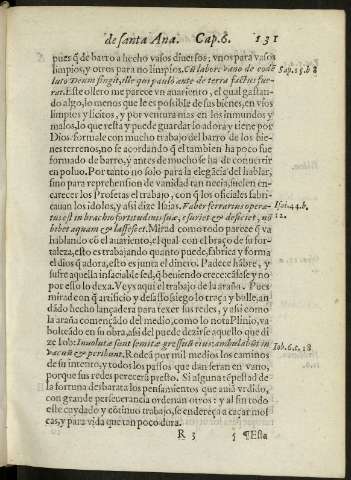 de santa Ana. Cap. 6. 131
pues q̃ de barro a hecho vasos diuersos; vnos para vasos
limpios, y otros para no limpios. Cũ labore vano de eodẽ
luto Deum fingit, ille qui paulò ante de terra factus fue-
rat. Este ollero me parece vn auariento, el qual gastan-
do algo, lo menos que le es possible de sus bienes, en vsos
limpios y licitos, y por ventura mas en los inmundos y
malos, lo que resta y puede guardar lo adora y tiene por
Dios: formale con mucho trabajo del barro de los bie-
nes terrenos, no se acordando q̃ el tambien ha poco fue
formado de barro, y antes de mucho se ha de conuertir
en poluo. Por tanto no solo para la elegācia del hablar,
sino para reprehension de vanidad tan necia, suelen en-
carecer los Profetas el trabajo, con q̃ los oficiales fabri-
cauan los idolos, y assi dize Isaias. Faber ferrarius opera-
tus est in brachio fortitudinis suæ, esuriet & deficiet, nõ
bibet aquam & lassescet. Mirad como todo parece q̃ va
hablando cõ el auariento, el qual con el braço de su for-
taleza, esto es trabajando quanto puede, fabrica y forma
el dios q̃ adora, esto es junta el dinero. Padece hãbre, y
sufre aquella insaciable sed, q̃ beuiendo crece: cãsase y no
por esso lo dexa. Veys aqui el trabajo de la araña. Pues
mirad con q̃ artificio y desassossiego lo traça y bulle, an-
dādo hecho lançadera para texer sus redes, y assi como
la araña començādo del medio, como lo nota Plinio, va
bolteādo en su obra, assi del puede dezirse aquello que di
ze Iob: Inuolutæ sunt semitæ gressuũ eius: ambulabũt in
vacuũ & peribunt. Rodeā por mil medios los caminos
de su intento, y todos los passos que dan seran en vano,
porque sus redes perecerā presto. Si alguna tẽpestad de
la fortuna desbarata los pensamientos que auia vrdido,
con grande perseuerancia ordenan otros: y al fin todo
este cuydado y cõtinuo trabajo, se endereça a caçar mos-
cas, y para vida que tan poco dura.
R 3 ¶ Esta
Sap. 15. b 8
Isai. 44. b.
12.
Iob. 6. c. 18